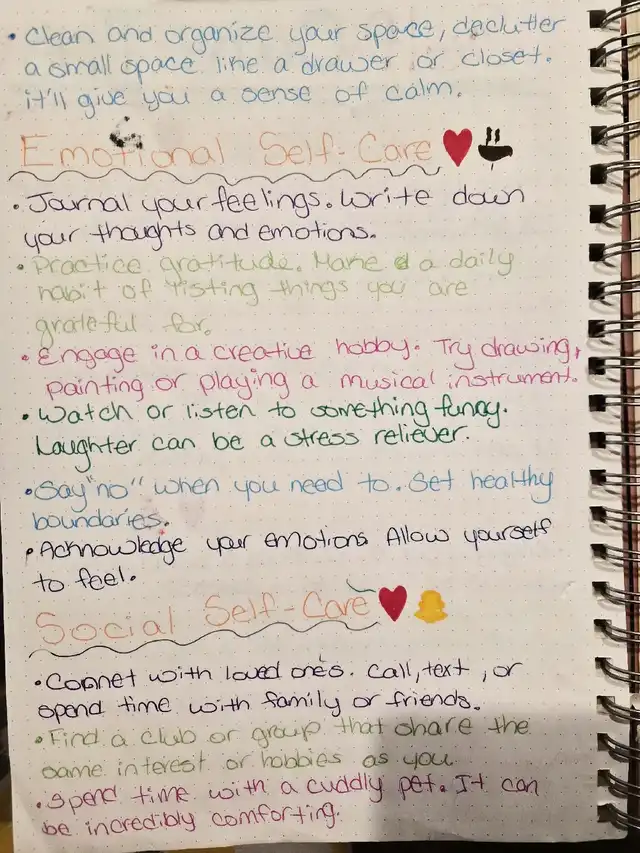 • Clean and organize your space, declutter
a small space like a drawer or closet.
it'll give you a sense of calm.
Emotional Self-Care
• Journal your feelings. Write down
your thoughts and emotions.
• Practice gratitude. Make a a daily
habit of listing things you are
grateful for.
• Engage in a creative hobby. Try drawing,
painting or playing a musical instrument.
• Watch or listen to something funny.
Laughter can be a stress reliever.
• Say "no" when you need to. Set healthy
boundaries.
• Acknowledge your emotions Allow yourself
to feel.
Social Self-Care
• Connet with loved one's. Call, text, or
spend time with family or friends.
• Find a club or group that share the
same interest or hobbies as you
• Spend time with a cuddly pet. It can
be incredibly comforting.